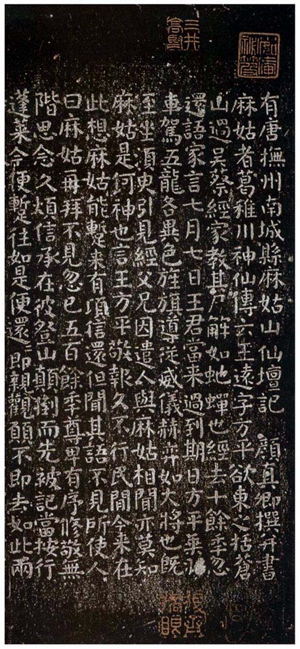 有唐撫州南城縣麻姑山仙壇記 顏真卿撰并書
麻姑者葛稚川神仙傳云王遠字方平欲東之括蒼
山過吳蔡經家教其尸解如蛇蟬也經去十餘季忽
還語家言七月七日王君當來過到期日方平乘
車駕五龍各異色旌旗導從威儀赫弈如大將也既
至坐須臾引見經父兄因遣人與麻姑相聞亦莫知
麻姑是何神也言王方平敬報久不行民間今來在
此想麻姑能蹔來有頃信還但聞其語不見所使人
曰麻姑再拜不見忽已五百餘季尊卑有序修敬無
階思念久煩信承在彼登山顛倒而先被記當按行
蓬萊今便蹔往如是便還即親觀願不即去如此兩
三井高堅